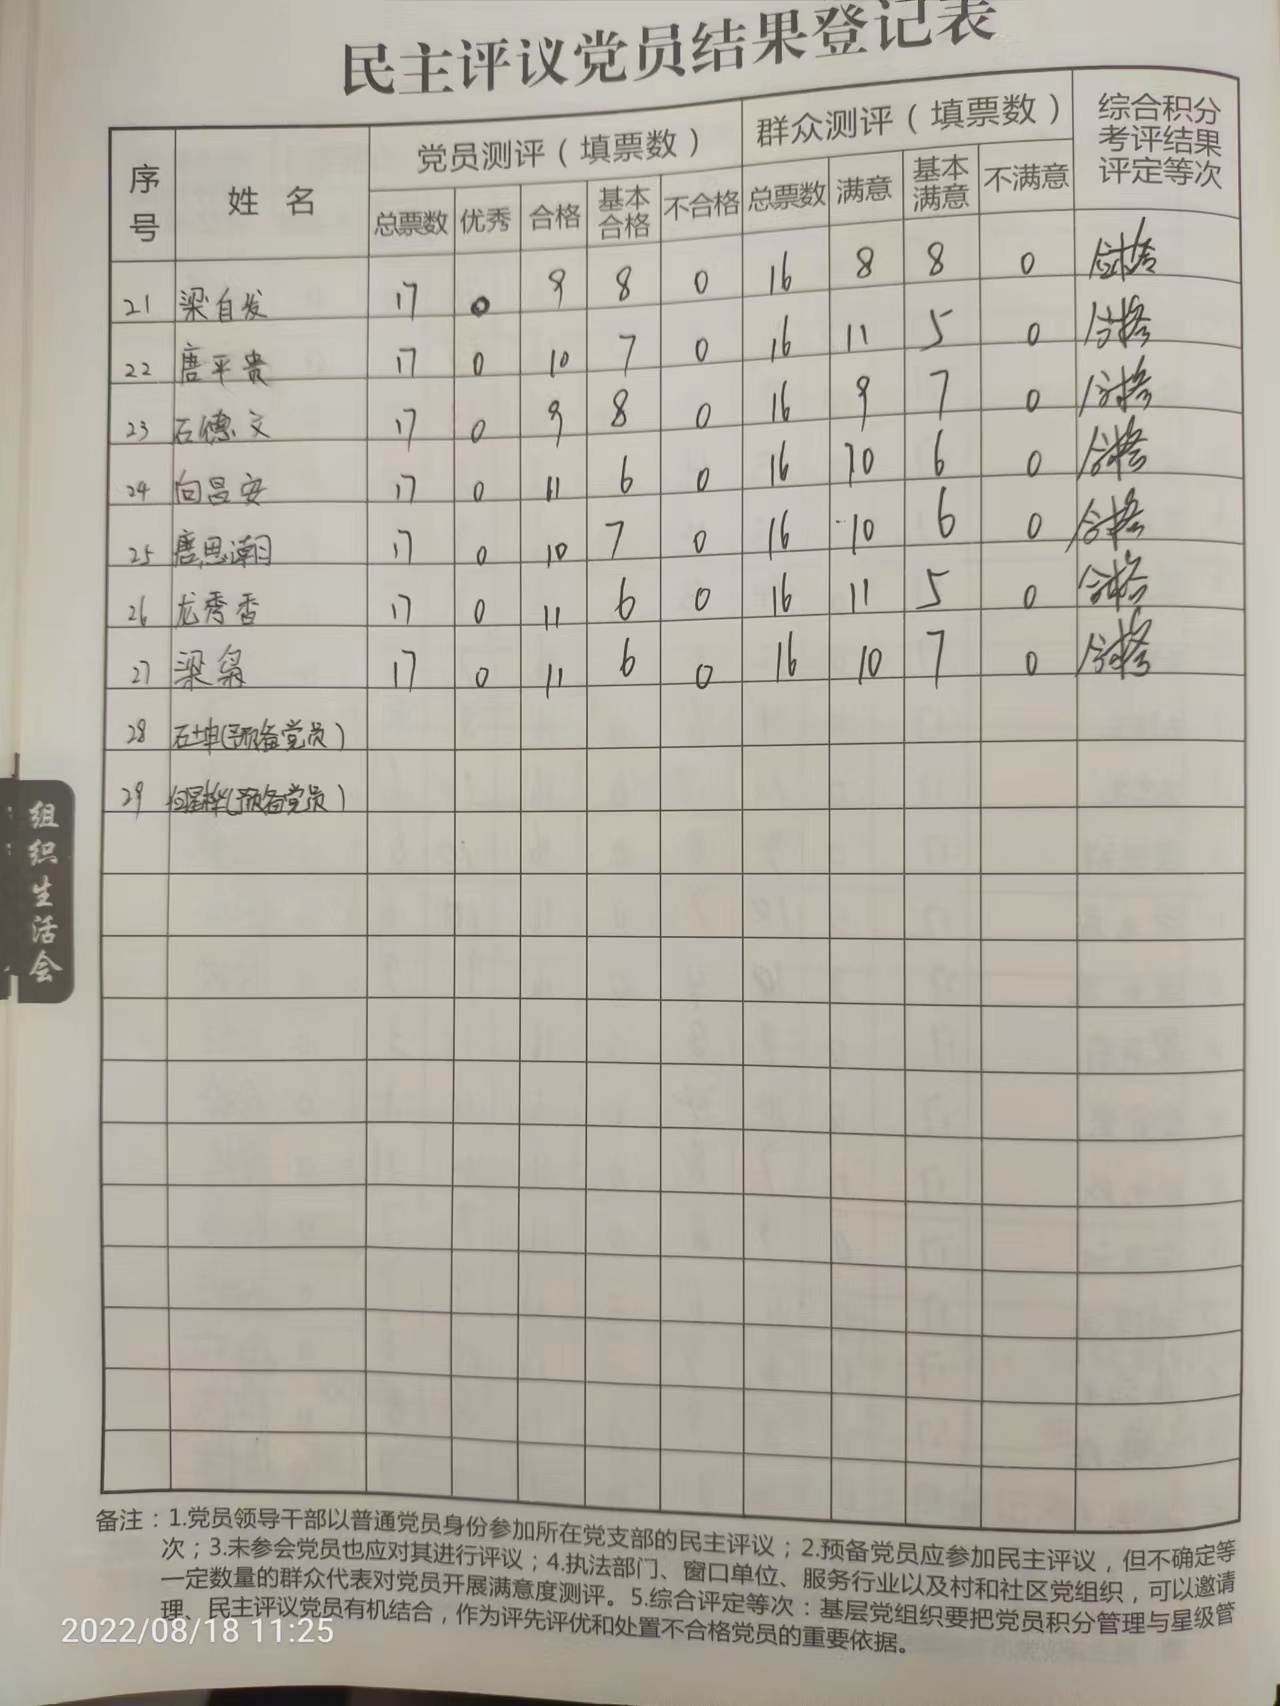 民主评议党员结果登记表
序号 姓名 党员测评（填票数） 群众测评（填票数） 综合积分考评结果评定等次
总票数 优秀 合格 基本合格 不合格 总票数 满意 基本满意 不满意
21 梁自发 17 0 9 8 0 16 8 8 0 合格
22 唐平贵 17 0 10 7 0 16 11 5 0 合格
23 石德文 17 0 9 8 0 16 9 7 0 合格
24 向昌安 17 0 11 6 0 16 10 6 0 合格
25 唐思潮 17 0 10 7 0 16 10 6 0 合格
26 龙秀香 17 0 11 6 0 16 11 5 0 合格
27 梁枭 17 0 11 6 0 16 10 7 0 合格
28 石坤(预备党员)
29 (预备党员)
组织生活会
备注：1.党员领导干部以普通党员身份参加所在党支部的民主评议；2.预备党员应参加民主评议，但不确定等
次；3.未参会党员也应对其进行评议；4.执法部门、窗口单位、服务行业以及村和社区党组织，可以邀请
一定数量的群众代表对党员开展满意度测评。5.综合评定等次：基层党组织要把党员积分管理与星级管
理、民主评议党员有机结合，作为评先评优和处置不合格党员的重要依据。
2022/08/18 11:25